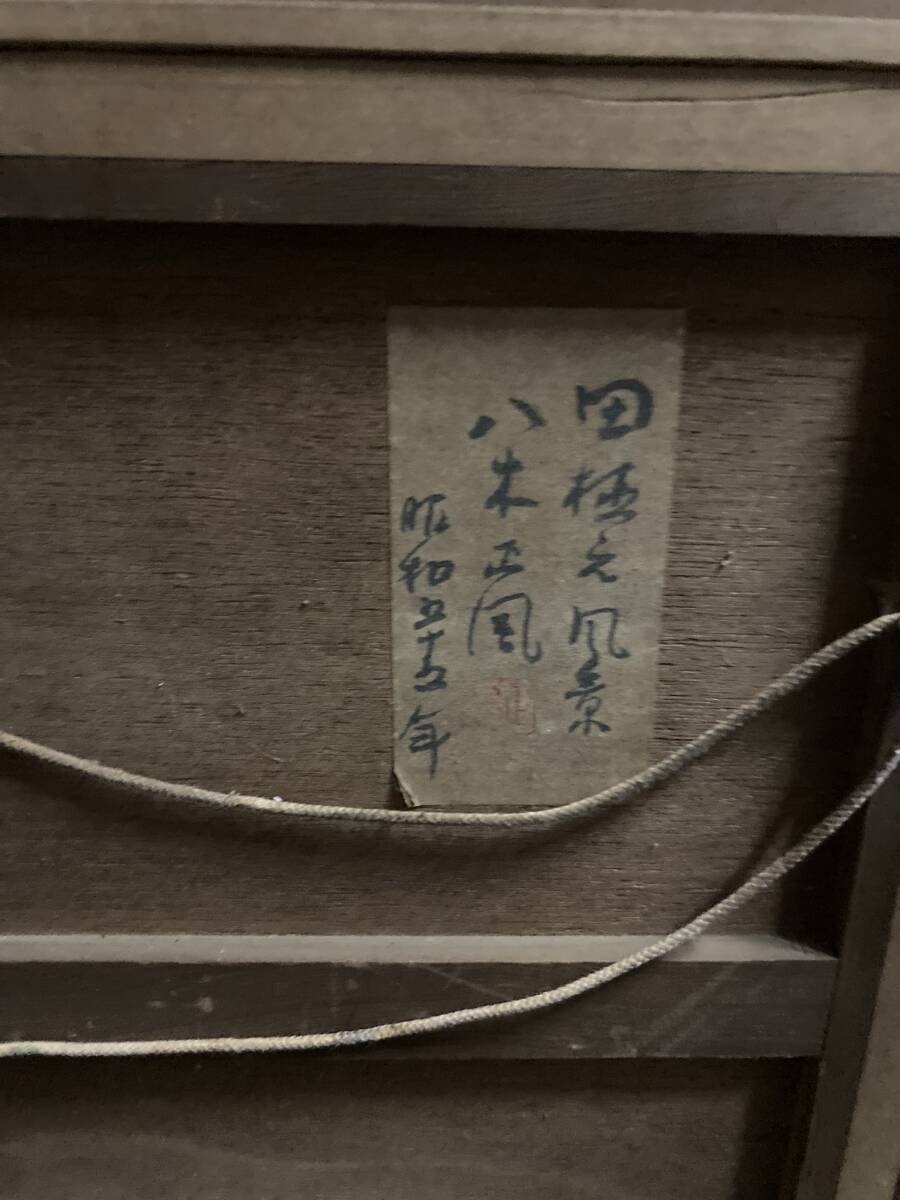 田植之風景
八木正風
昭和五十五年